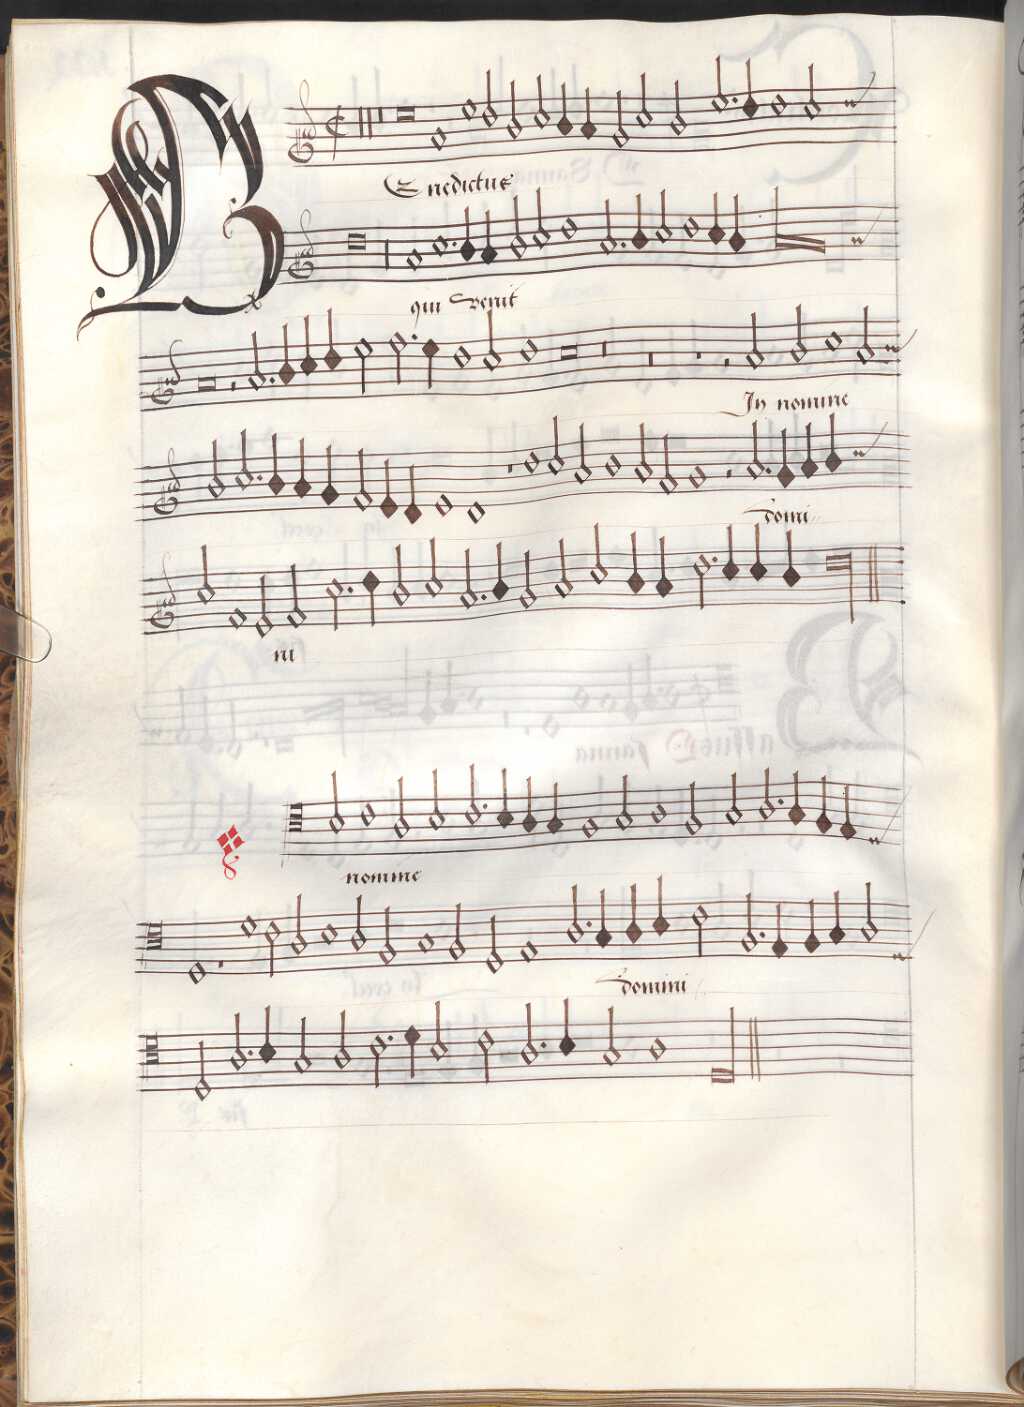 Benedictus
qui venit
In nomine
domi
ni
nomine
domini